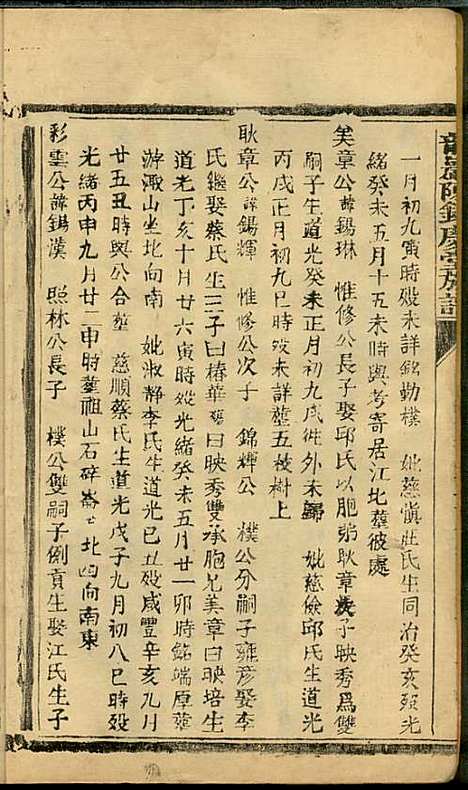 一月初九寅時歿未詳銘勤樸 妣慈慎莊氏生同治癸亥歿光
緒癸未五月十五未時與考寄居江北塟彼處
美章公諱錫琳 惟修公長子娶邱氏以胞弟耿章次子映秀為雙
嗣子生道光癸未正月初九戌徃外未歸 妣慈儉邱氏生道光
丙戌正月初九巳時歿未詳塟五枝樹上
耿章公諱錫輝 惟修公次子 錦輝公 樸公分嗣子雍彥娶李
氏繼娶蔡氏生三子曰椿華曰映秀雙承胞兄美章曰映培生
道光丁亥十月廿六寅時歿光緒癸未五月廿一卯時銘端厚塟
游漈山坐北向南 妣淑静李氏生道光己丑歿咸豐辛亥九月
廿五丑時與公合塟 慈順蔡氏生道光戊子九月初八巳時歿
光緒丙申九月廿二申時塟祖山石碎崙亡北向南東
彩雲公諱錫漢 照林公長子 樸公雙嗣子例貢生娶江氏生子